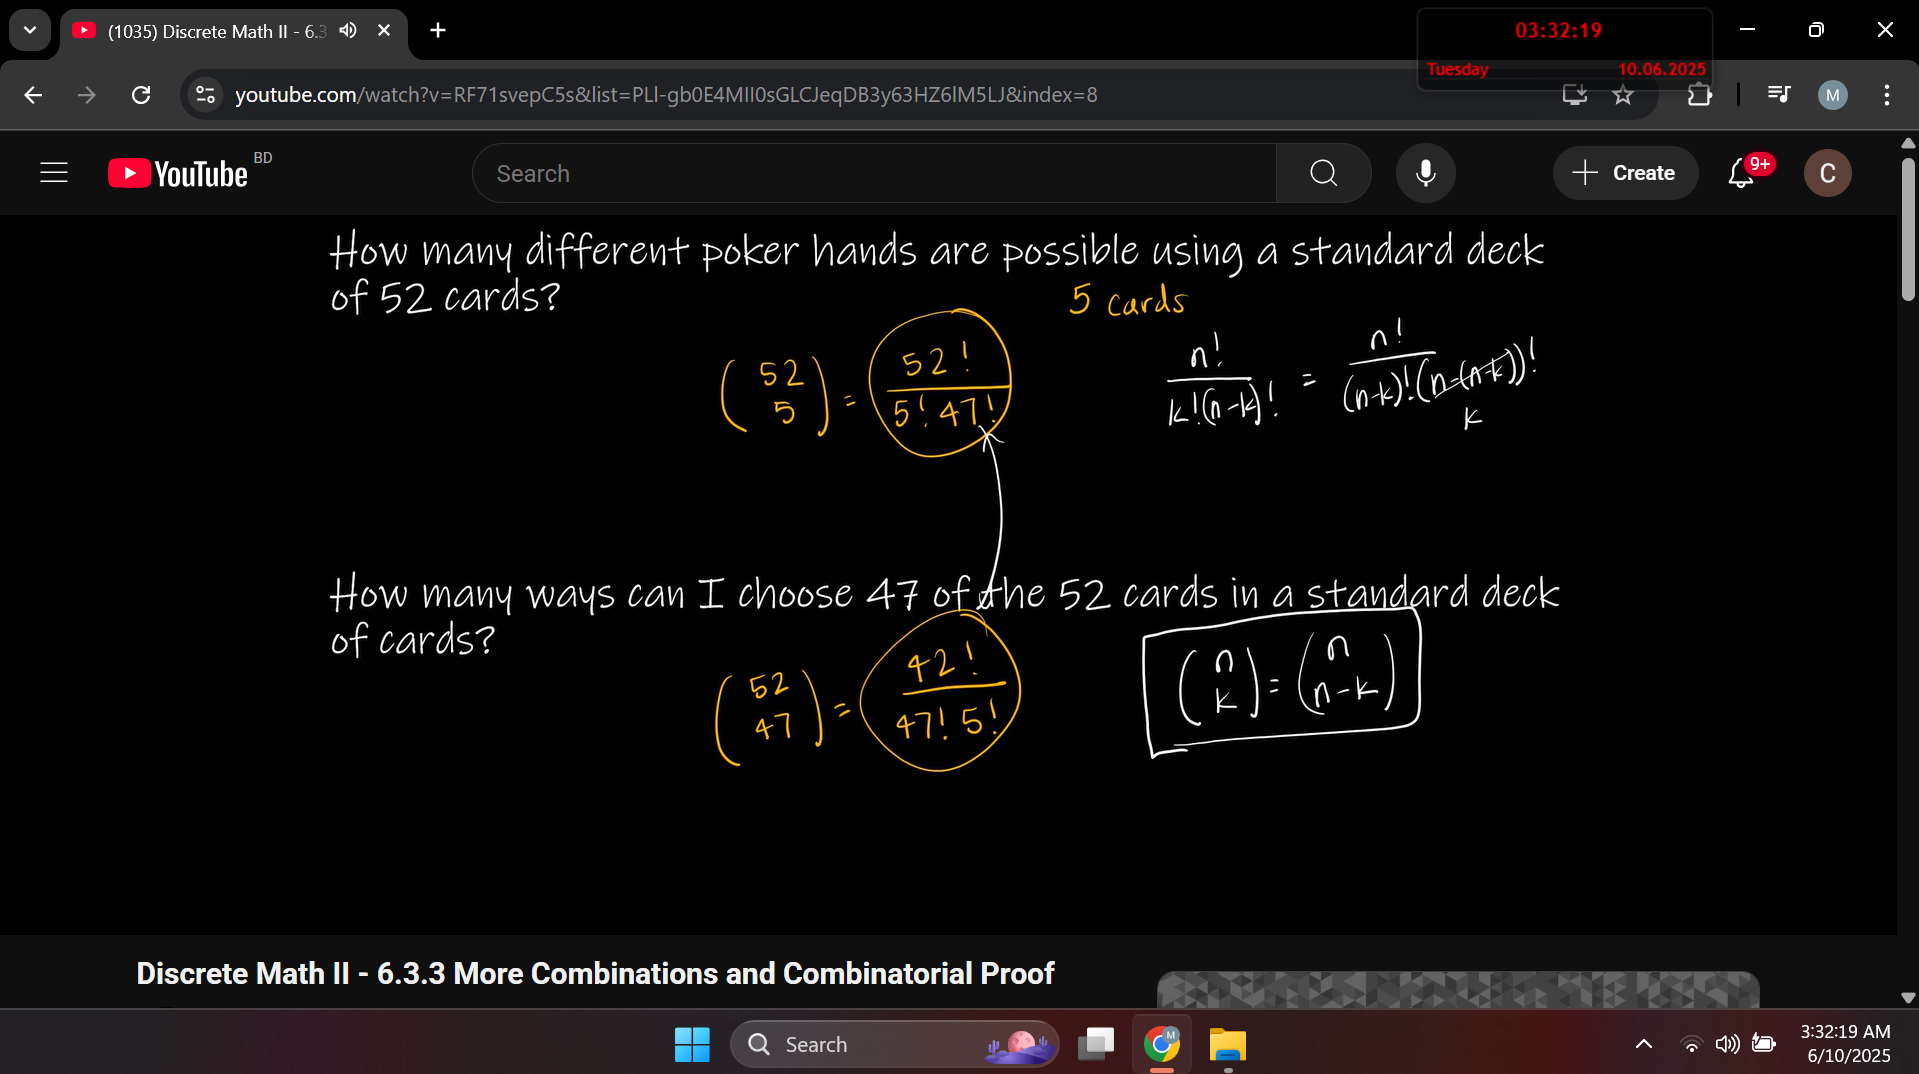 (1035) Discrete Math II - 6.3
03:32:19
Tuesday 10.06.2025
youtube.com/watch?v=RF71svepC5s&list=PLl-gb0E4MII0sGLCJeqDB3y63HZ6lM5LJ&index=8
M
YouTube BD
Search
Create
9+
C
How many different poker hands are possible using a standard deck
of 52 cards?
5 cards
(52 5) = 52! / 5! 47!
n! / k!(n-k)! = n! / (n-k)!(n-(n-k))!
k
How many ways can I choose 47 of the 52 cards in a standard deck
of cards?
(52 47) = 42! / 47! 5!
(n k) = (n n-k)
Discrete Math II - 6.3.3 More Combinations and Combinatorial Proof
Search
M
3:32:19 AM
6/10/2025